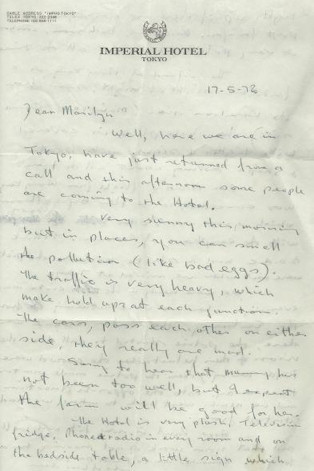 CABLE ADDRESS: "IMPHO TOKYO"
IMPERIAL HOTEL
TOKYO
17-5-76
Dear Marilyn
Well, here we are in
Tokyo, have just returned from a
call and this afternoon some people
are coming to the Hotel.
Very sunny this morning
but in places, you can smell
the pollution (like bad eggs).
The traffic is very heavy, which
make hold ups at each junction.
The cars, pass each other on either
side, they really are mad.
Sorry to hear that Mummy has
not been too well, but I expect
the farm will be good for her.
The Hotel is very plush, Television
fridge, Phone radio in every room and on
the bedside table, a little sign which